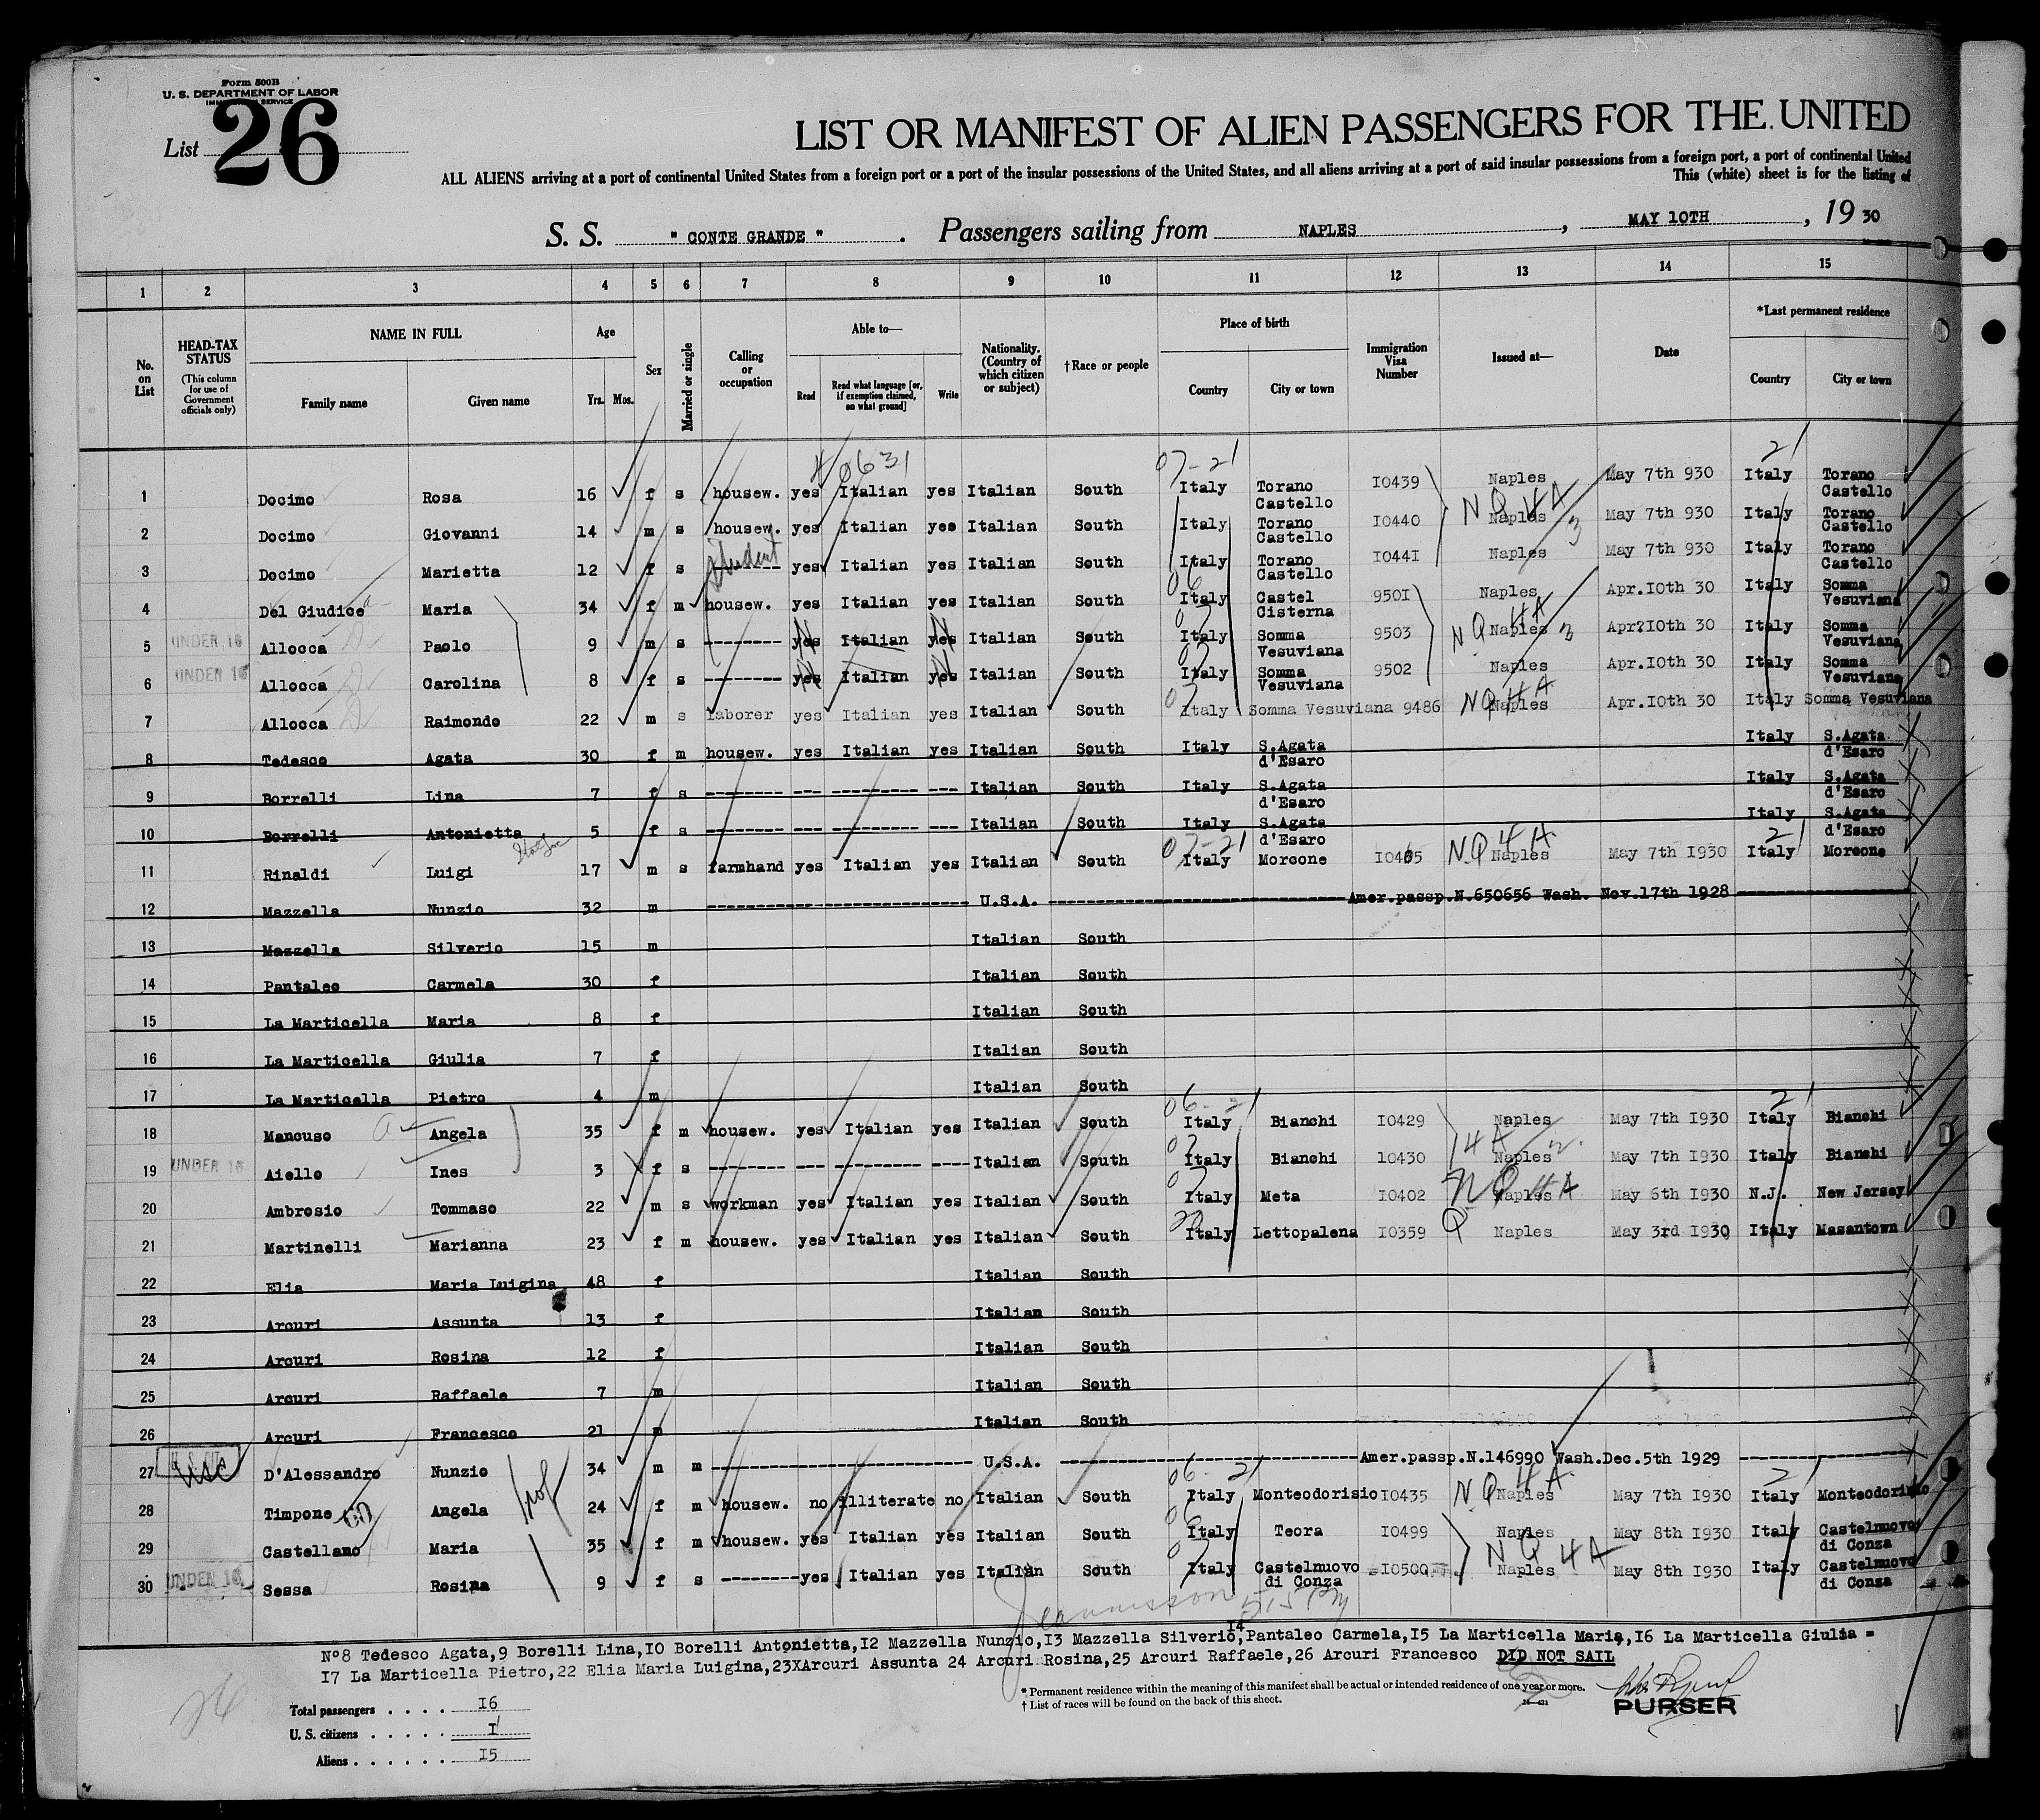 Form 500B
U. S. DEPARTMENT OF LABOR
IMMIGRATION SERVICE
List 26
LIST OR MANIFEST OF ALIEN PASSENGERS FOR THE UNITED
ALL ALIENS arriving at a port of continental United States from a foreign port or a port of the insular possessions of the United States, and all aliens arriving at a port of said insular possessions from a foreign port, a port of continental United
This (white) sheet is for the listing of
S. S. " CONTE GRANDE " . Passengers sailing from NAPLES , MAY 10TH , 19 30
1 2 3 4 5 6 7 8 9 10 11 12 13 14 15
No. on List
HEAD-TAX STATUS
(This column for use of Government officials only)
NAME IN FULL
Family name Given name
Age
Yrs. Mos.
Sex
Married or single
Calling or occupation
Able to—
Read
Read what language [or, if exemption claimed, on what ground]
Write
Nationality. (Country of which citizen or subject)
†Race or people
Place of birth
Country City or town
Immigration Visa Number
Issued at—
Date
*Last permanent residence
Country City or town
07-21 21
1 Docimo Rosa 16 f s housew. yes Italian yes Italian South Italy Torano Castello I0439 Naples May 7th 930 Italy Torano Castello
NQ 4A
2 Docimo Giovanni 14 m s housew. yes Italian yes Italian South Italy Torano Castello I0440 Naples May 7th 930 Italy Torano Castello
Student
3 Docimo Marietta 12 f s -------- yes Italian yes Italian South Italy Torano Castello I044I Naples May 7th 930 Italy Torano Castello
06
4 Del Giudice Maria 34 f m housew. yes Italian yes Italian South Italy Castel Cisterna 950I Naples Apr.I0th 30 Italy Somma Vesuviana
NQ 4A 3
5 UNDER 16 Allocca Paolo 9 m s -------- yes Italian yes Italian South Italy Somma Vesuviana 9503 Naples Apr?I0th 30 Italy Somma Vesuviana
6 UNDER 16 Allocca Carolina 8 f s -------- yes Italian yes Italian South Italy Somma Vesuviana 9502 Naples Apr.I0th 30 Italy Somma Vesuviana
NQ 4A
7 Allocca Raimondo 22 m s laborer yes Italian yes Italian South Italy Somma Vesuviana 9486 Naples Apr.I0th 30 Italy Somma Vesuviana
8 Tedesco Agata 30 f m housew. yes Italian yes Italian South Italy S.Agata d'Esaro Italy S.Agata d'Esaro
9 Borrelli Lina 7 f s -------- --- --------- --- Italian South Italy S.Agata d'Esaro Italy S.Agata d'Esaro
10 Borrelli Antonietta 5 f s -------- --- --------- --- Italian South Italy S.Agata d'Esaro Italy S.Agata d'Esaro
07-21 NQ 4A 21
11 Rinaldi Luigi 17 m s farmhand yes Italian yes Italian South Italy Morcone I0465 Naples May 7th I930 Italy Morcone
12 Mazzella Nunzio 32 m ---------- U.S.A. ---------- Amer.passp.N.650656 Wash. Nov.17th 1928 ----------
13 Mazzella Silverio 15 m Italian South
14 Pantaleo Carmela 30 f Italian South
15 La Marticella Maria 8 f Italian South
16 La Marticella Giulia 7 f Italian South
17 La Marticella Pietro 4 m Italian South
06-21 21
18 Mancuso Angela 35 f m housew. yes Italian yes Italian South Italy Bianchi I0429 Naples May 7th I930 Italy Bianchi
19 UNDER 16 Aiello Ines 3 f s -------- --- --------- ---- Italian South Italy Bianchi 10430 Naples May 7th I930 Italy Bianchi
20 Ambrosio Tommaso 22 m s workman yes Italian yes Italian South Italy Meta I0402 NQ 4A Naples May 6th I930 N.J. New Jersey
21 Martinelli Marianna 23 f m housew. yes Italian yes Italian South Italy Lettopalena I0359 Q Naples May 3rd I930 Italy Masantown
22 Elia Maria Luigina 48 f Italian South
23 Arcuri Assunta 13 f Italian South
24 Arcuri Rosina 12 f Italian South
25 Arcuri Raffaele 7 m Italian South
26 Arcuri Francesco 21 m Italian South
27 USC D'Alessandro Nunzio 34 m m ---------- U.S.A. ---------- Amer.passp.N.146990 Wash.Dec.5th 1929 ----------
06-21 NQ 4A 21
28 Timpone Angela 24 f m housew. no illiterate no Italian South Italy Monteodorisio I0435 Naples May 7th I930 Italy Monteodorisio
06
29 Castellano Maria 35 f m housew. yes Italian yes Italian South Italy Teora I0499 Naples May 8th I930 Italy Castelnuovo di Conza
NQ 4A
30 UNDER 16 Sessa Rosina 9 f s -------- yes Italian yes Italian South Italy Castelnuovo di Conza I0500 Naples May 8th I930 Italy Castelnuovo di Conza
I4
Nº8 Tedesco Agata,9 Borelli Lina,I0 Borelli Antonietta,I2 Mazzella Nunzio,I3 Mazzella Silverio,Pantaleo Carmela,I5 La Marticella Maria,I6 La Marticella Giulia =
I7 La Marticella Pietro,22 Elia Maria Luigina,23XArcuri Assunta 24 Arcuri Rosina,25 Arcuri Raffaele,26 Arcuri Francesco DID NOT SAIL
* Permanent residence within the meaning of this manifest shall be actual or intended residence of one year or more.
† List of races will be found on the back of this sheet.
PURSER
Total passengers . . . . I6
U. S. citizens . . . . . I
Aliens . . . . . . I5